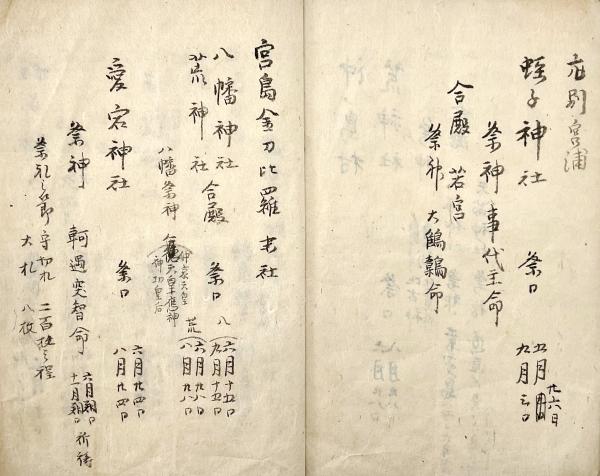 庄別宮浦
蛭子神社 祭日 五月廿六日 九月三日
祭神 事代主命
合殿 若宮
祭神 大鷦鷯命
宮島金刀比羅宮社
八幡神社 合殿 祭日 八 六月十五日 九月十五日
荒神社 荒 六月廿八日 八月廿八日
八幡祭神 仲哀天皇 應神 神功皇后
愛宕神社 祭日 六月廿四日 八月廿四日
祭神 軻遇突智命 六月朔日 十一月朔日 祈祷
祭礼之節 守切札 二百枚之程
大札 八枚